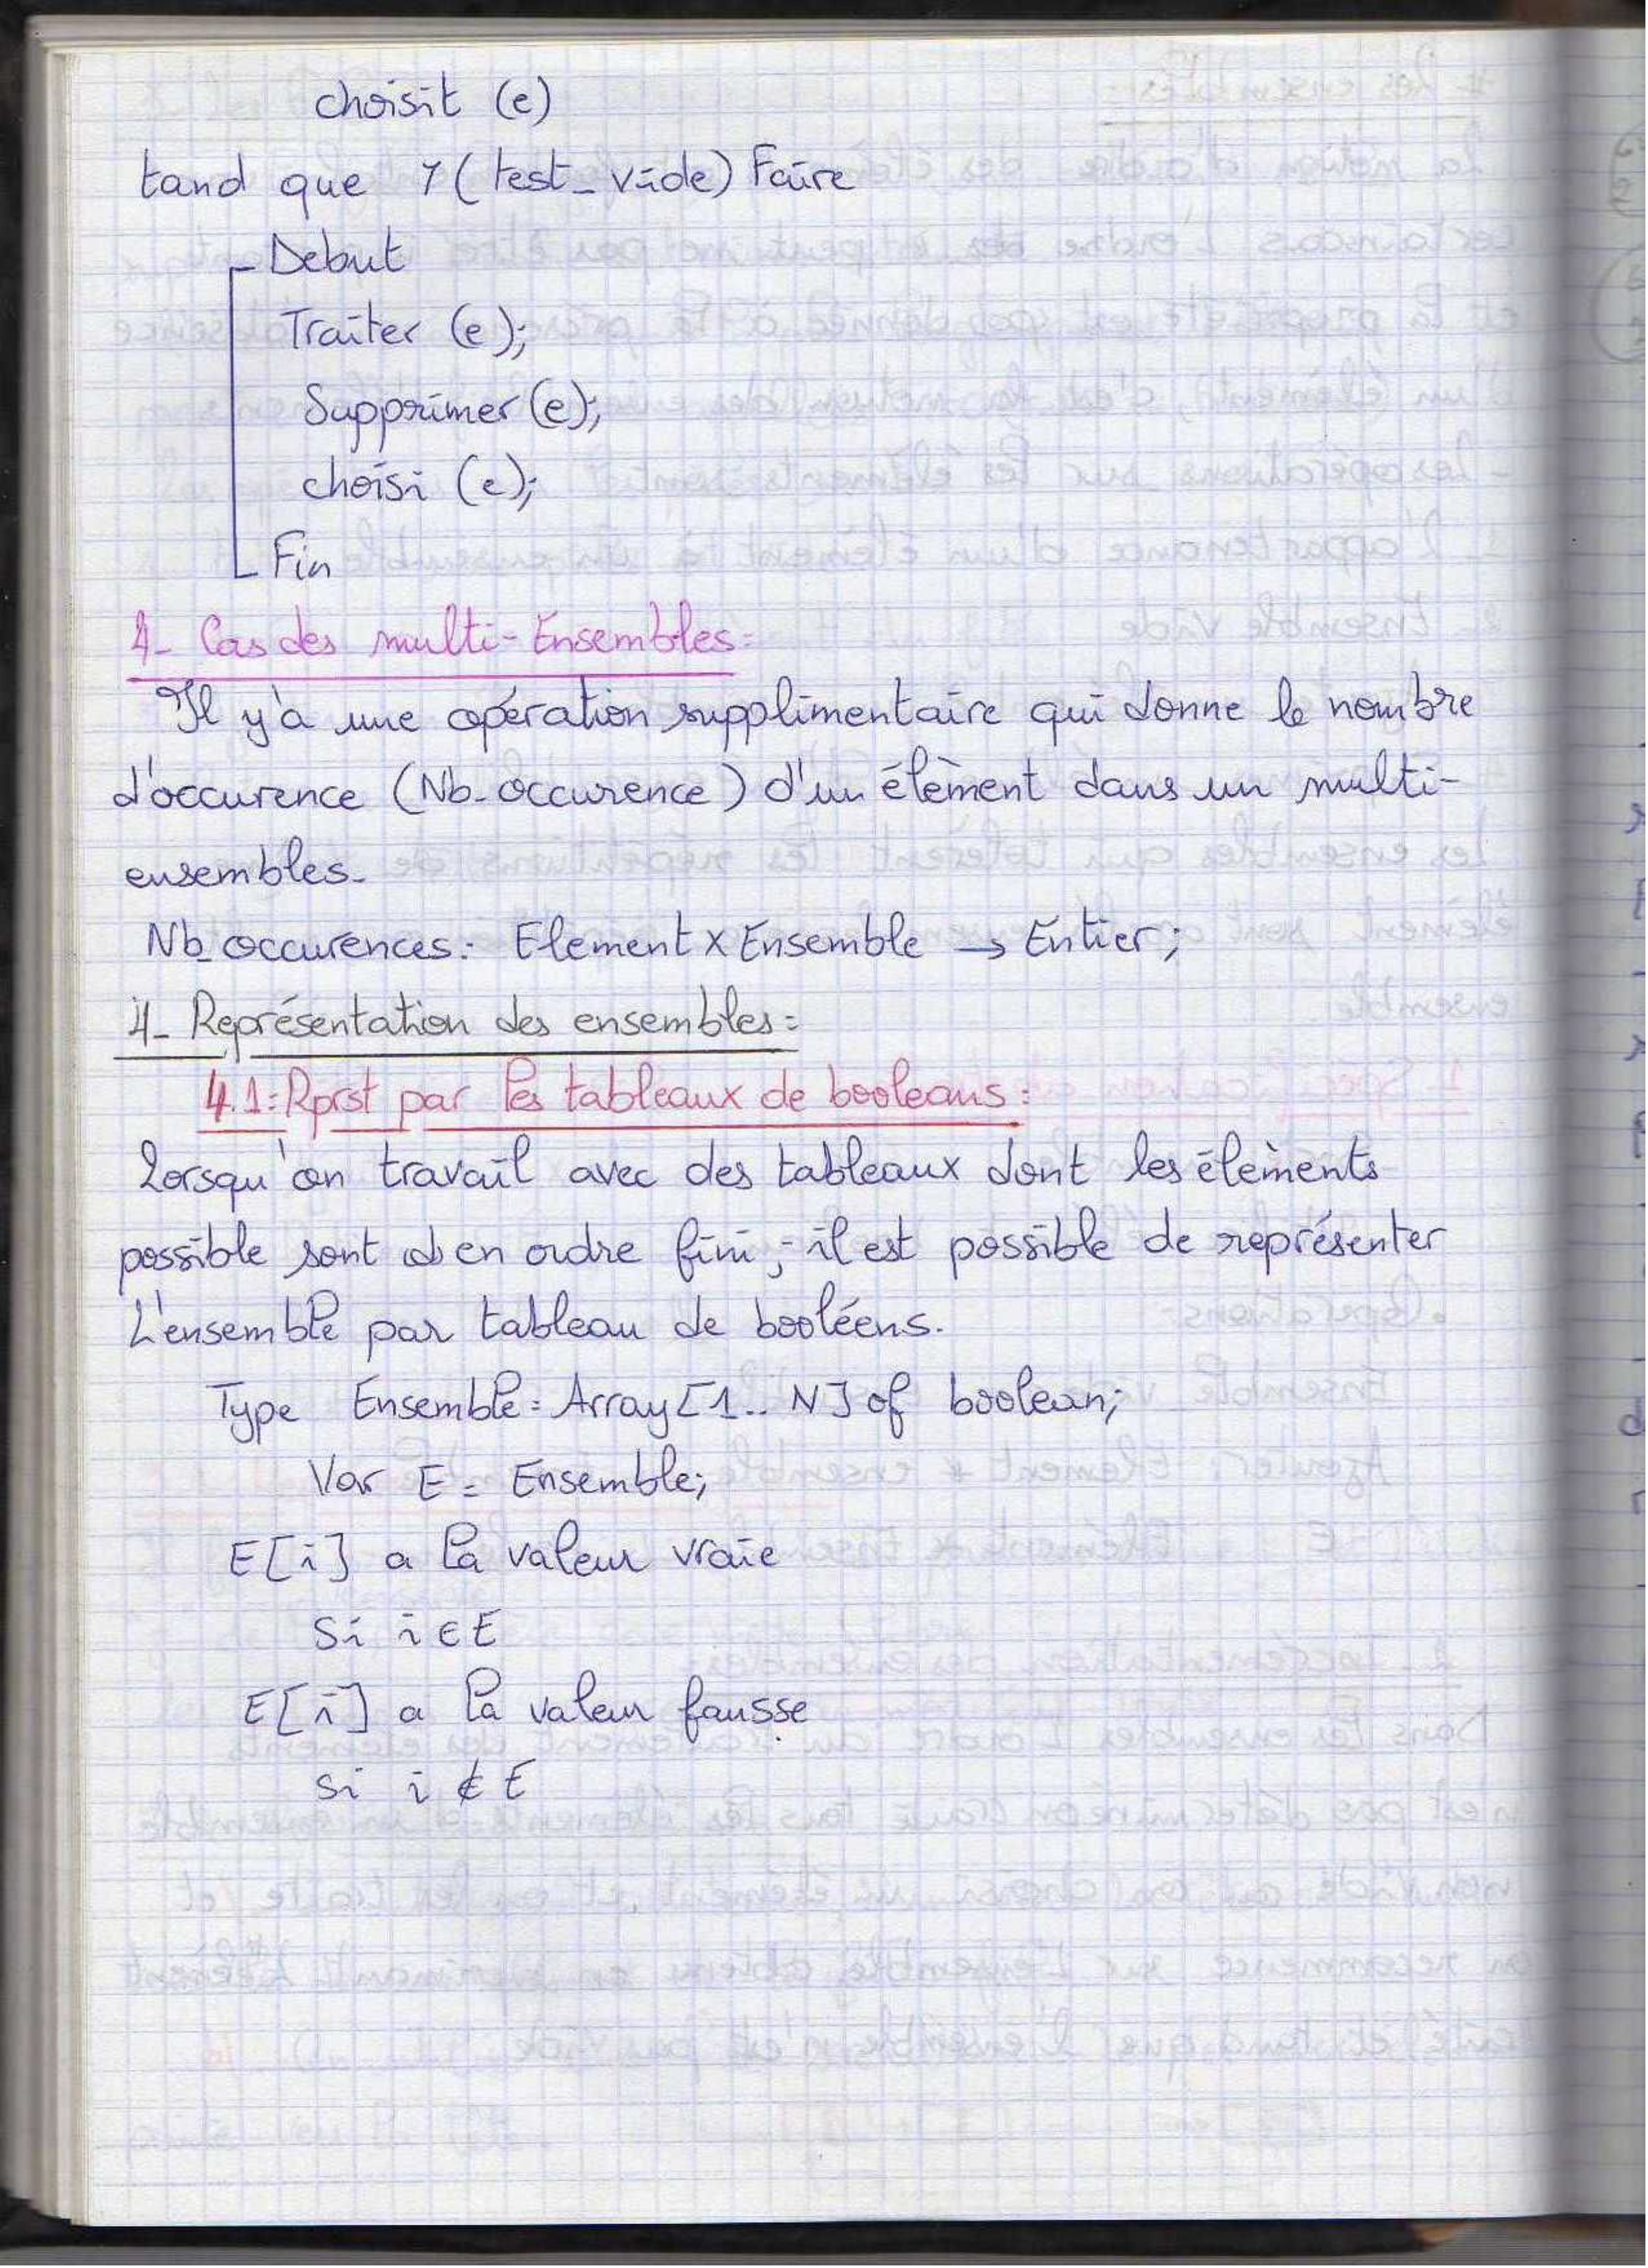 choisit (e)
tand que ⅂ ( test_vide) Faire
Debut
Traiter (e);
Supprimer (e);
choisi (e);
Fin
4- Cas des multi-Ensembles:
Il y'a une opération supplimentaire qui donne le nombre
d'occurence (Nb-occurence) d'un élèment dans un multi-
ensembles.
Nb_occurences: Element x Ensemble → Entier;
4- Représentation des ensembles:
4.1: Rprst par les tableaux de booleans:
Lorsqu'on travail avec des tableaux dont les élèments
possible sont en ordre fini, il est possible de représenter
L'ensemble par tableau de booléens.
Type Ensemble = Array [1.. N] of boolean;
Var E = Ensemble;
E[i] a la valeur vraie
Si i ∈ E
E[i] a la valeur fausse
si i ∉ E